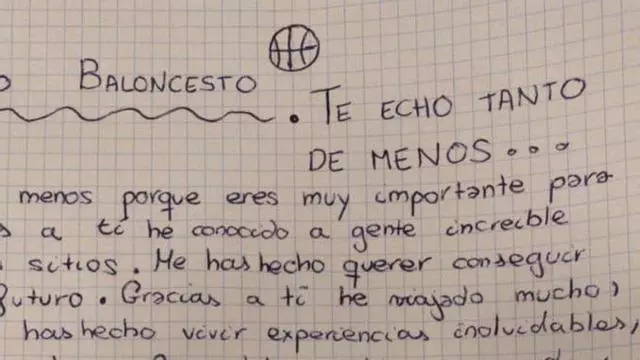 o BALONCESTO
. TE ECHO TANTO
DE MENOS...
menos porque eres muy importante para
s a ti he conocido a gente increible
sitios. Me has hecho querer conseguir
futuro. Gracias a ti he viajado mucho,
has hecho vivir experiencias inolvidables,